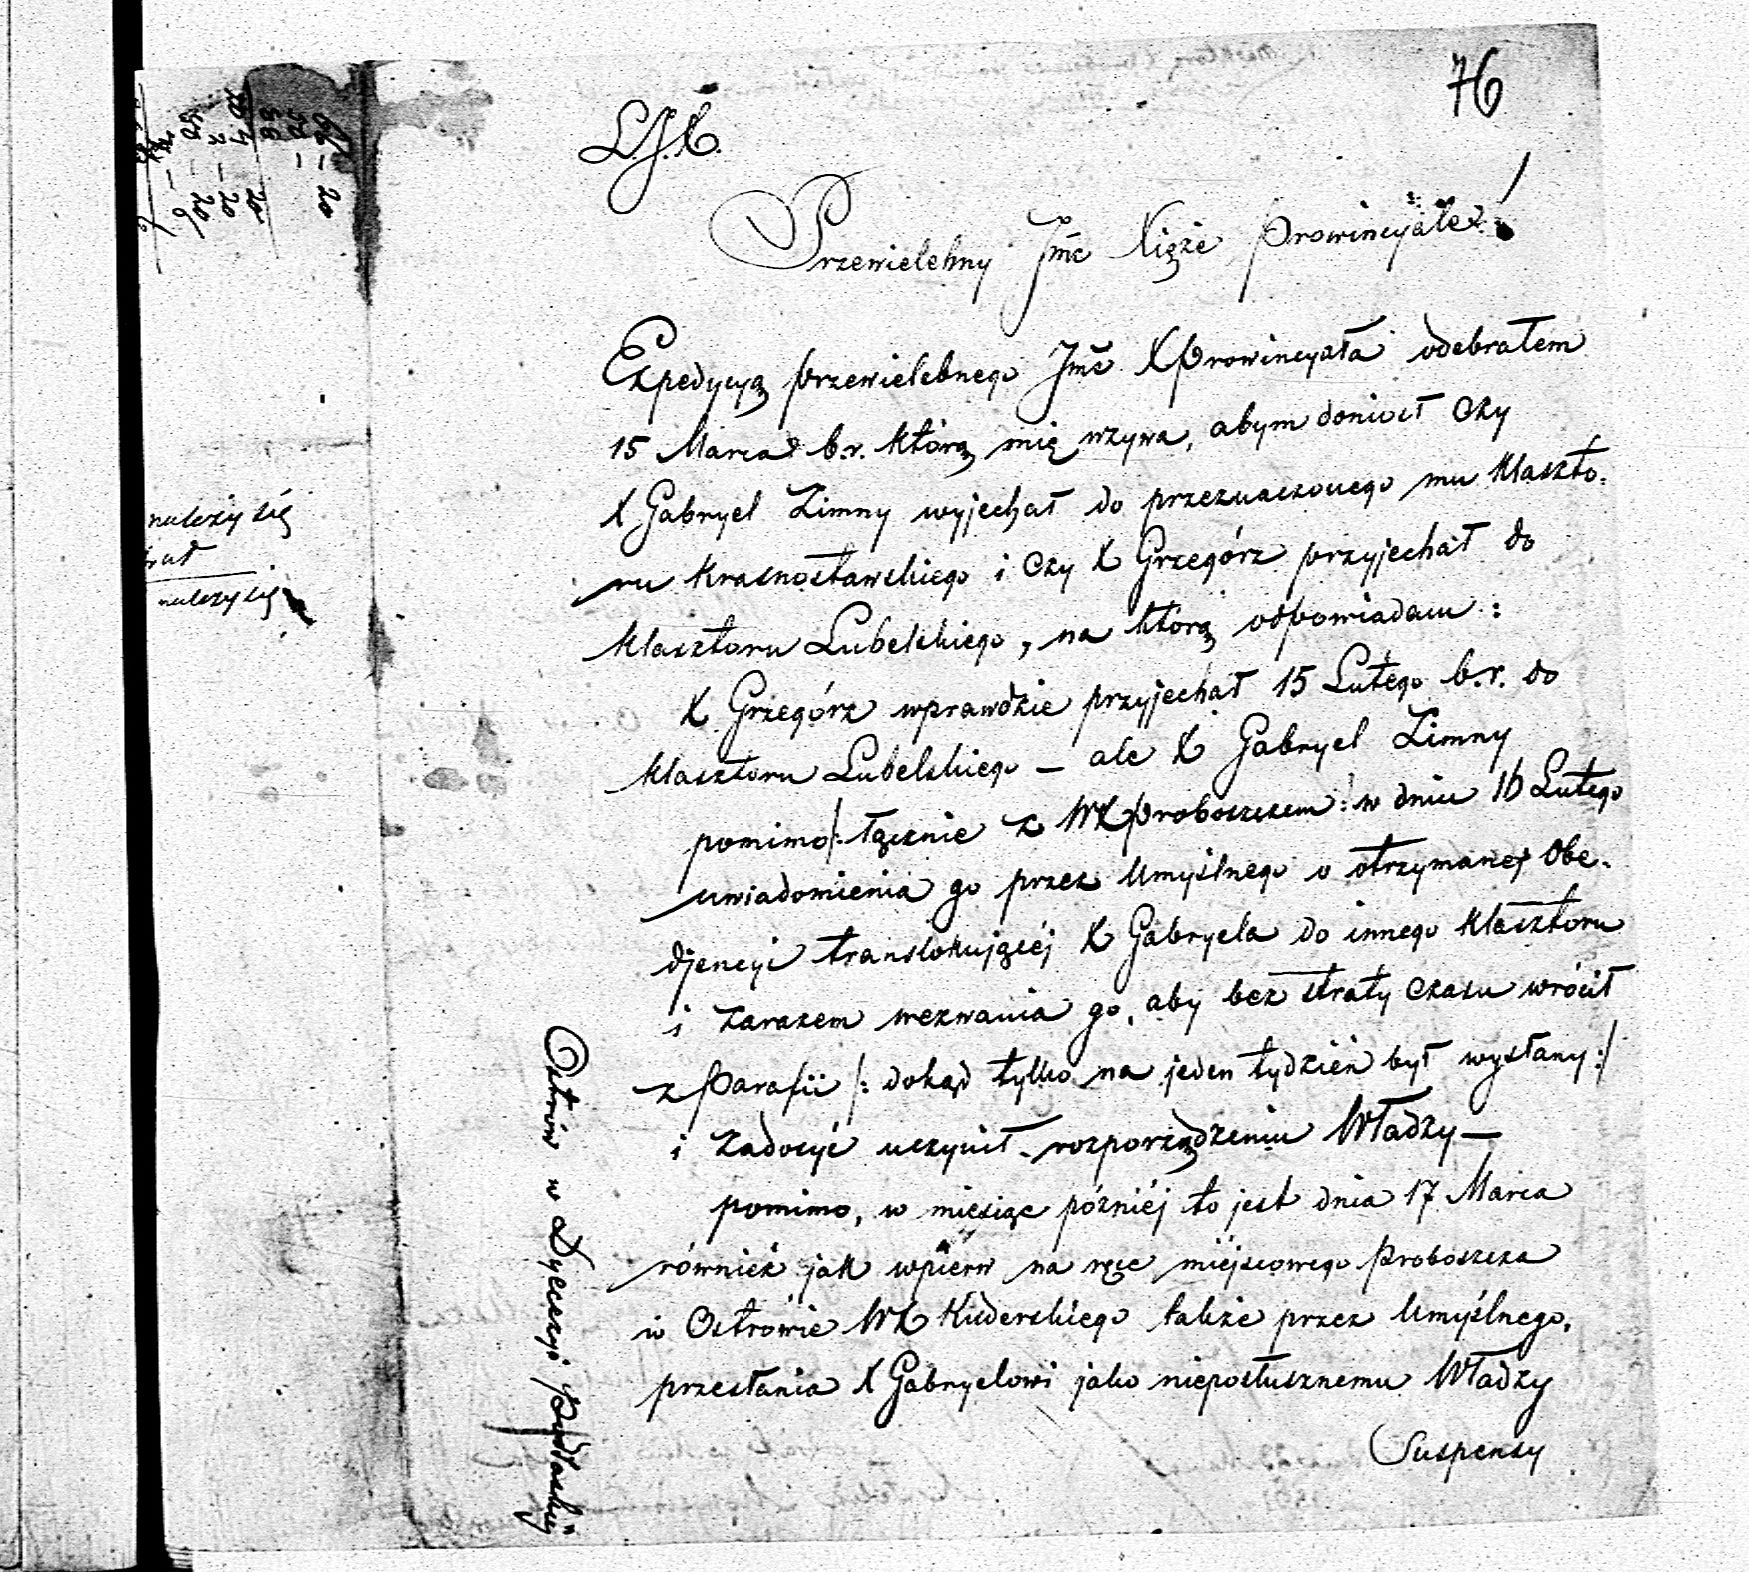 76
L.J.X.
Przewielebny Jmć Xięże Prowincyale!
Expedycyą przewielebnego Jmć X Prowincyała odebrałem
15 Marca b.r. którą mię wzywa, abym doniósł czy
X Gabryel Zimny wyjechał do przeznaczonego mu klaszto-
ru Krasnostawskiego i czy X Grzegórz przyjechał do
klasztoru Lubelskiego, na którą odpowiadam:
X Grzegórz wprawdzie przyjechał 15 Lutego b.r. do
klasztoru Lubelskiego — ale X Gabryel Zimny
pomimo /: łącznie z WX Proboszczem: w dniu 16 Lutego
uwiadomienia go przez Umyślnego o otrzymanej Obe-
djencyi translokującéj X Gabryela do innego klasztoru
i zarazem wezwania go, aby bez straty czasu wrócił
z Parafii /: dokąd tylko na jeden tydzień był wysłany :/
i zadosyć uczynił rozporządzeniu Władzy —
pomimo, w miesiąc późniéj to jest dnia 17 Marca
również jak wpierw na ręce miéjscowego Proboszcza
w Ostrówie WX Kuderskiego także przez Umyślnego,
przesłania X Gabryelowi jako nieposłusznemu Władzy
Suspensy
Ostrów w Dyecezyi Podlaskiéj
należy się
należy się